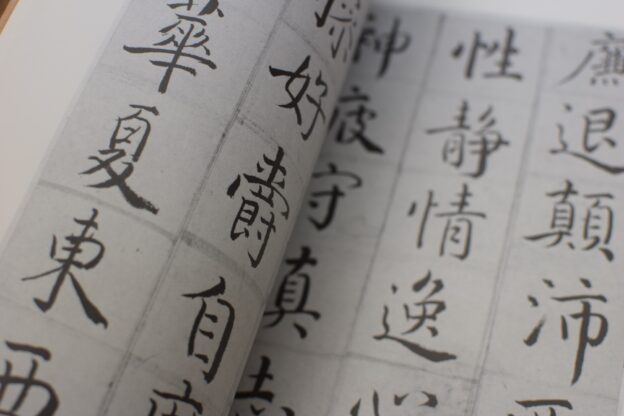 廉退顛沛
性靜情逸心
神疲守真志
好爵自
華夏東西